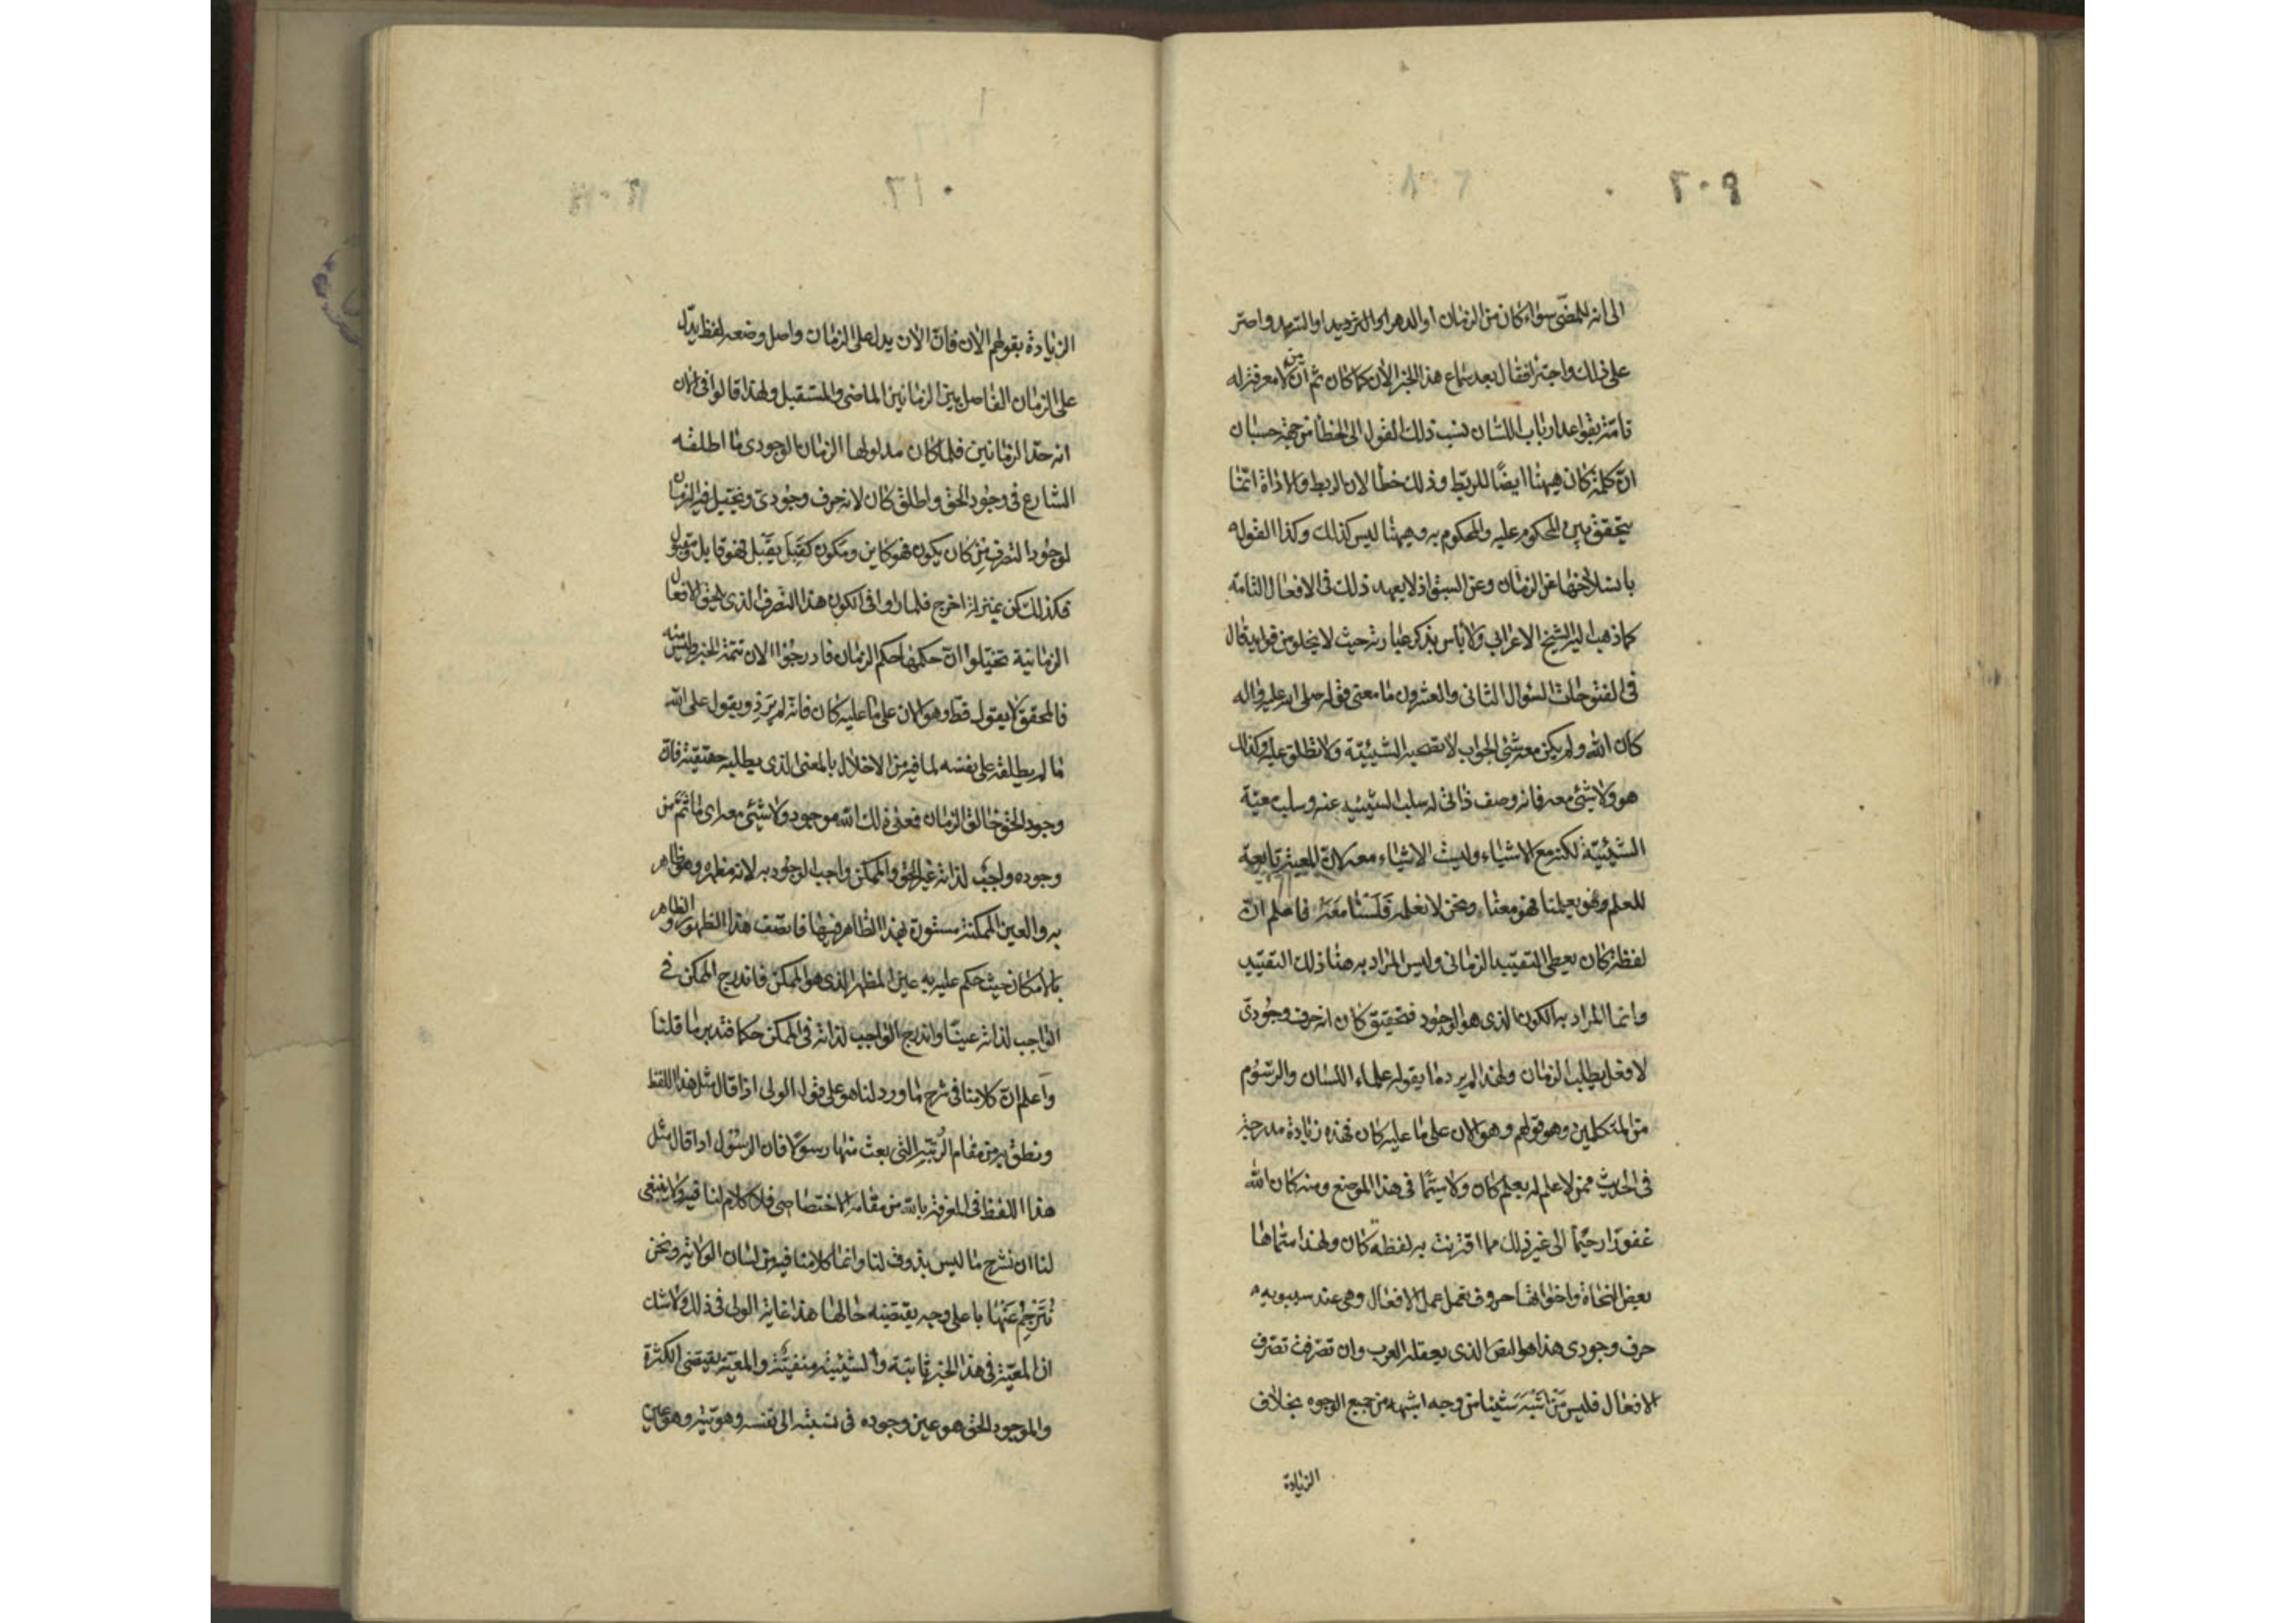 ٢٠٩
الى انه للمضى سواء كان من الزمان او الدهر او السرمد واصر
على ذلك واجترا فقال بعد سماع هذا الخبر الآن كما كان ثم ان من لا معرفة له
تامة بقواعد ارباب اللسان نسب ذلك القول الى الخطأ من جهة حسبان
ان كلمة كان هيهنا ايضًا للربط وذلك خطأ لان الربط والاداة انما
يتحقق بين المحكوم عليه والمحكوم به وهيهنا ليس كذلك وكذا القول
بانسلاخها عن الزمان وعن السبق اذ لا يعهد ذلك فى الافعال التامة
كما ذهب اليه الشيخ الاعرابى ولا بأس بذكر عبارته حيث لا يخلو من فوايد قال
فى الفتوحات السؤال الثانى والعشرون ما معنى قوله صلى الله عليه واله
كان الله ولم يكن معه شئ الجواب لا تصحبه الشيئية ولا تطلق عليه وكذلك
هو ولا شئ معه فانه وصف ذاتى له سلب الشيئية عنه وسلب معية
الشيئية لكنه مع الاشياء وليست الاشياء معه لان المعية تابعة
للعلم وهو يعلمنا فهو معنا ونحن لا نعلمه فلسنا معه فاعلم ان
لفظة كان يعطى التقييد الزمانى وليس المراد به هنا ذلك التقييد
وانما المراد به الكون الذى هو الوجود فتحقيق كان انه حرف وجودى
لا فعل يطلب الزمان ولهذا لم يرد ما يقوله علماء اللسان والرسوم
من المتكلمين وهو قولهم وهو الان على ما عليه كان فهذه زيادة مدرجة
فى الحديث ممن لا علم له بعلم كان ولا سيما فى هذا الموضع ومنه كان الله
غفورًا رحيمًا الى غير ذلك مما اقترنت به لفظة كان ولهذا سماها
بعض النحاة واخواتها حروف تعمل عمل الافعال وهى عند سيبويه
حرف وجودى هذا هو النص الذى يعقله العرب وان تصرفت تصرف
الافعال فليس من اشبه شيئا من وجه اشبهه من جميع الوجوه بخلاف
الزيادة
٢١٠
الزيادة بقولهم الان فان الان يدل على الزمان واصل وضعه لفظ يدل
على الزمان الفاصل بين الزمانين الماضى والمستقبل ولهذا قالوا فى الان
انه حد الزمانين فلما كان مدلولها الزمان الوجودى ما اطلقه
الشارع فى وجود الحق واطلق كان لانه حرف وجودى وتخيل فيه الزمان
لوجود التصرف من كان يكون فهو كاين ومكون كقبل يقبل فهو قابل ومقبول
وكذلك كن بمنزلة اخرج فلما راوا فى الكون هذا التصرف الذى يلحق الافعال
الزمانية تخيلوا ان حكمها حكم الزمان فادرجوا الان تتمة للخبر وليس منه
فالمحقق لا يقول قط وهو الان على ما عليه كان فانه لم يرد ويقول على الله
ما لم يطلقه على نفسه لما فيه من الاخلال بالمعنى الذى يطلبه حقيقة فان
وجود الحق خالق الزمان فمعنى ذلك الله موجود ولا شئ معه اى ما ثم من
وجوده واجب لذاته غير الحق والممكن واجب الوجود به لانه مظهره وهو ظاهر
به والعين الممكنة مستورة بهذا الظاهر فيها فاتصف هذا الظهور والظاهر
بالامكان حيث حكم عليه به عين المظهر الذى هو الممكن فاندرج الممكن فى
الواجب لذاته عينًا واندرج الواجب لذاته فى الممكن حكمًا فتدبر ما قلنا
واعلم ان كلامنا فى شرح ما ورد لنا هو على قول الولى اذا قال مثل هذا اللفظ
ونطق به من مقام الرتبة التى بعث منها رسولًا فان الرسول اذا قال مثل
هذا اللفظ فى المعرفة بالله من مقامه الاختصاصى فلا كلام لنا فيه ولا ينبغى
لنا ان نشرح ما ليس بذوق لنا وانما كلامنا فيه من لسان الولاية ونحن
نترجم عنها باعلى وجه يقتضيه حالها هذا غاية الولى فى ذلك ولا شك
ان المعية فى هذا الخبر ثابتة والشيئية منفية والمعية يقتضى الكثرة
والموجود الحق هو عين وجوده فى نسبته الى نفسه وهويته وهو عين